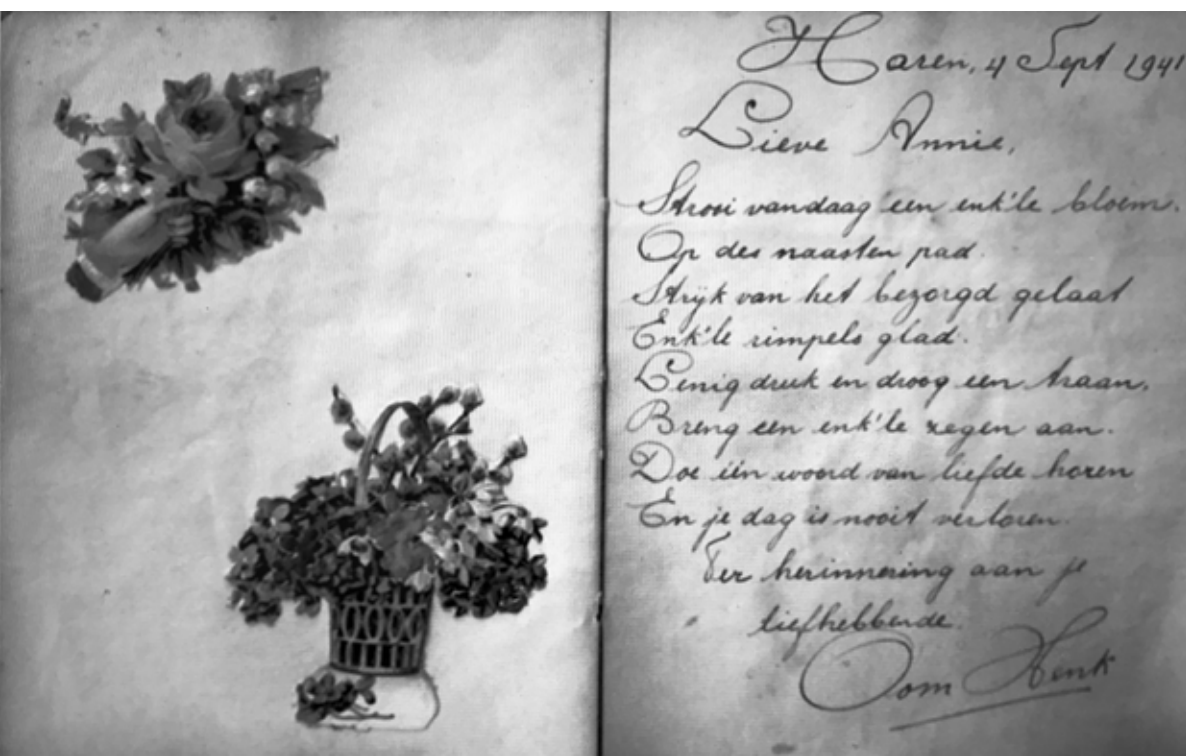 Haren, 4 Sept 1941
Lieve Annie,
Strooi vandaag een enk'le bloem.
Op des naasten pad.
Strijk van het bezorgd gelaat
Enk'le rimpels glad.
Lenig druk en droog een traan.
Breng een enk'le zegen aan.
Doe één woord van liefde horen
En je dag is nooit verloren.
Ter herinnering aan je
liefhebbende.
Oom Henk